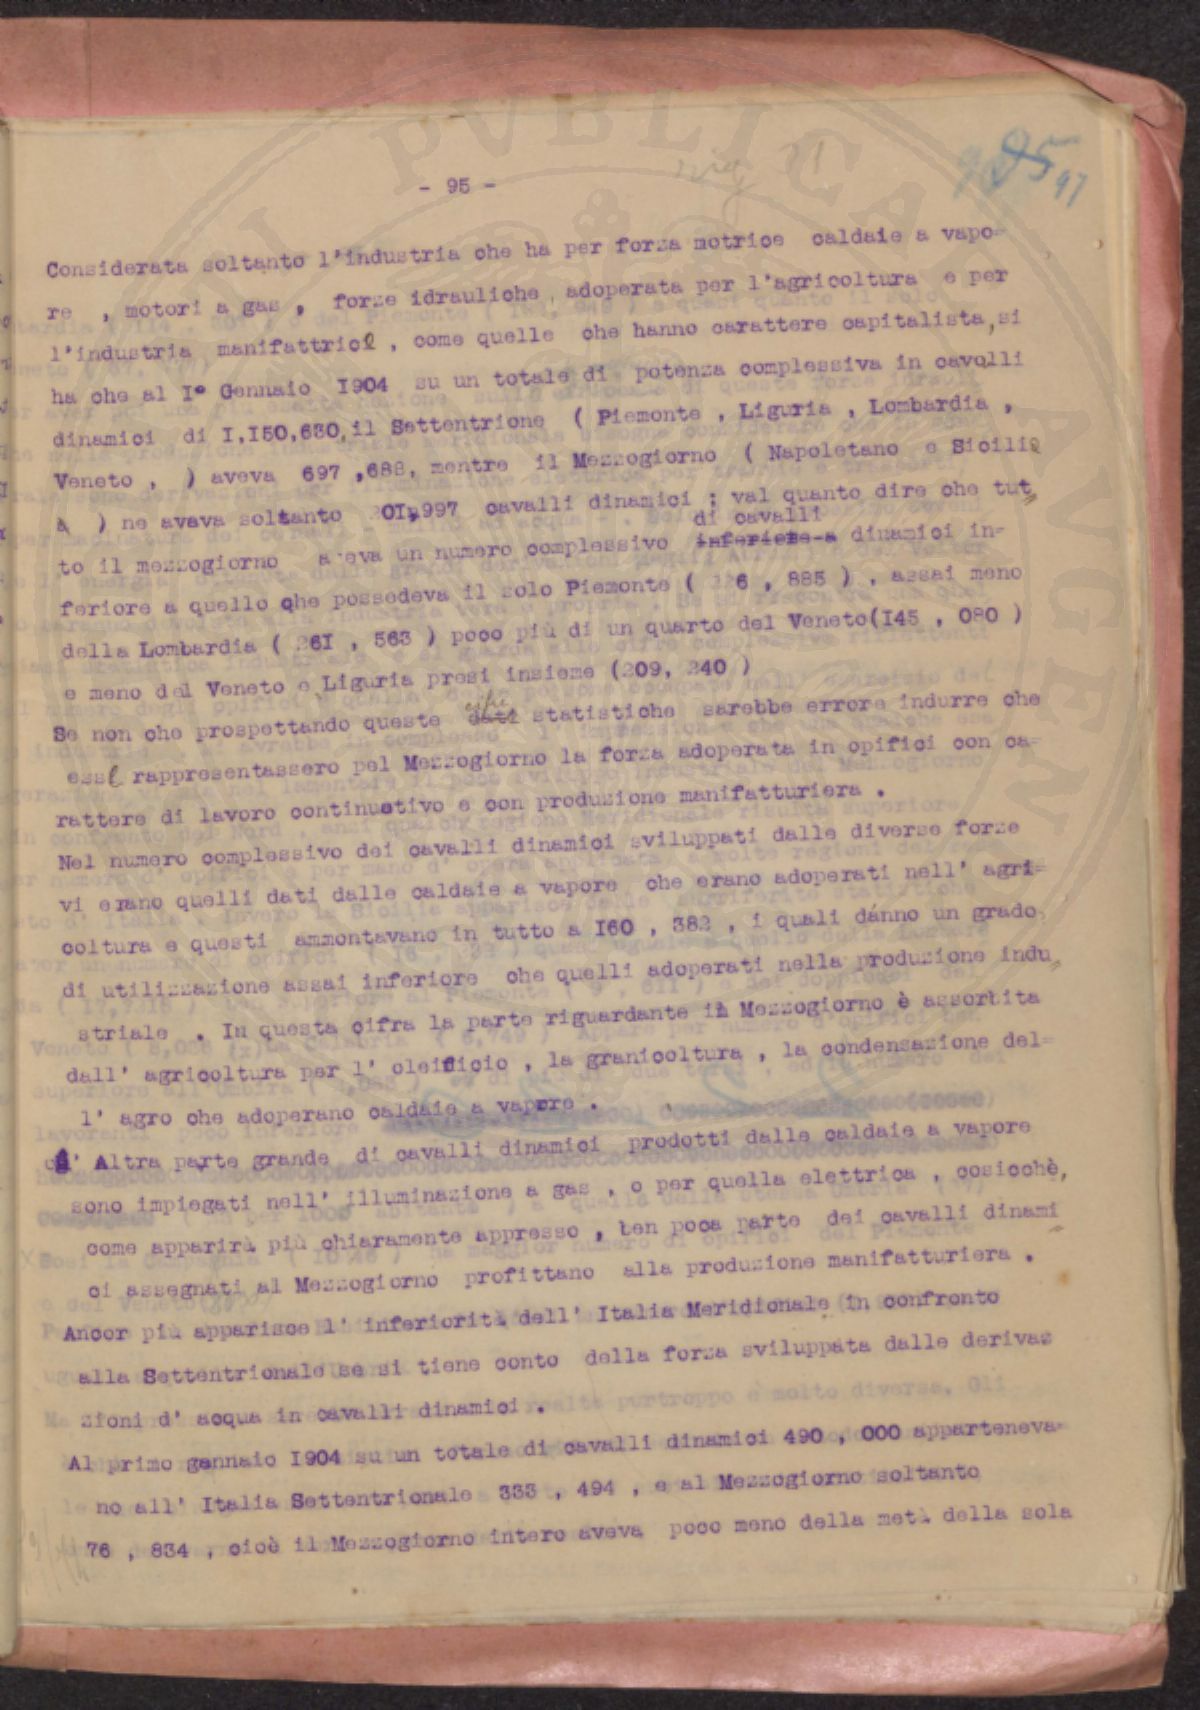 - 95 -
95 97
Considerata soltanto l'industria che ha per forza motrice caldaie a vapo-
re , motori a gas , forze idrauliche, adoperata per l'agricoltura e per
l'industria manifattrice , come quelle che hanno carattere capitalista, si
ha che al I° Gennaio I904 su un totale di potenza complessiva in cavolli
dinamici di I,I50,630, il Settentrione ( Piemonte , Liguria , Lombardia ,
Veneto , ) aveva 697 ,688, mentre il Mezzogiorno ( Napoletano e Sicilia
) ne aveva soltanto 20I,997 cavalli dinamici ; val quanto dire che tut
di cavalli
to il mezzogiorno aveva un numero complessivo inferiore a dinamici in-
feriore a quello che possedeva il solo Piemonte ( 6 , 885 ) , assai meno
della Lombardia ( 26I , 563 ) poco più di un quarto del Veneto(I45 , 080 )
e meno del Veneto e Liguria presi insieme (209, 240 )
cifre
Se non che prospettando queste dati statistiche sarebbe errore indurre che
esse rappresentassero pel Mezzogiorno la forza adoperata in opifici con ca-
rattere di lavoro continuativo e con produzione manifatturiera .
Nel numero complessivo dei cavalli dinamici sviluppati dalle diverse forze
vi erano quelli dati dalle caldaie a vapore che erano adoperati nell' agri-
coltura e questi ammontavano in tutto a I60 , 382 , i quali dánno un grado
di utilizzazione assai inferiore che quelli adoperati nella produzione indu
striale . In questa cifra la parte riguardante il Mezzogiorno è assorbita
dall' agricoltura per l' oleificio , la granicoltura , la condensazione del-
l' agro che adoperano caldaie a vapore .
Altra parte grande di cavalli dinamici prodotti dalle caldaie a vapore
sono impiegati nell' illuminazione a gas , o per quella elettrica , cosicchè,
come apparirà più chiaramente appresso , ben poca parte dei cavalli dinami
ci assegnati al Mezzogiorno profittano alla produzione manifatturiera .
Ancor più apparisce l' inferiorità dell' Italia Meridionale in confronto
alla Settentrionale se si tiene conto della forza sviluppata dalle derivaz
zioni d' acqua in cavalli dinamici .
Al primo gennaio I904 su un totale di cavalli dinamici 490 , 000 apparteneva-
no all' Italia Settentrionale 333 , 494 , e al Mezzogiorno soltanto
76 , 834 , cioè il Mezzogiorno intero aveva poco meno della metà della sola